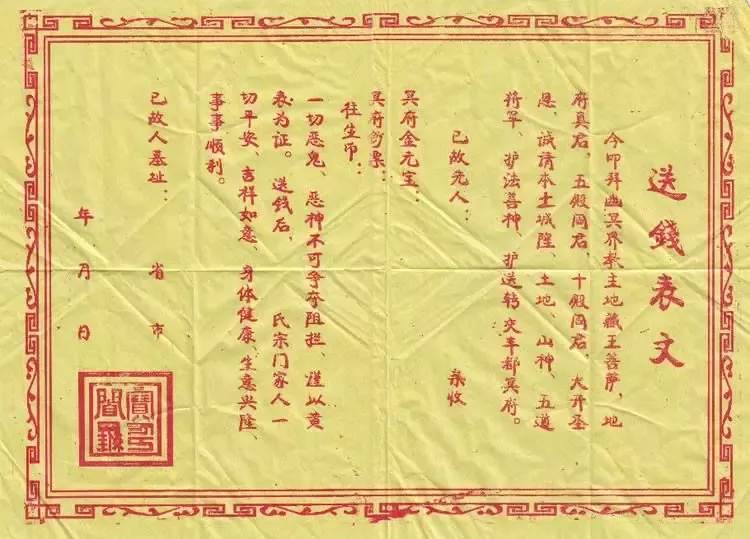 送錢表文
今叩拜幽冥界教主地藏王菩萨,地
府真君、五殿阎君、十殿阎君,大开圣
恩,诚请本土城隍、土地、山神、五道
将军、护法善神,护送转交丰都冥府。
已故先人: 亲收
冥府金元宝:
冥府剪票:
往生印:
一切恶鬼、恶神不可争夺阻拦,谨以黄
表为证。送钱后, 氏宗门家人一
切平安、吉祥如意、身体健康、生意兴隆、
事事顺利。
已故人墓址: 省 市
年 月 日